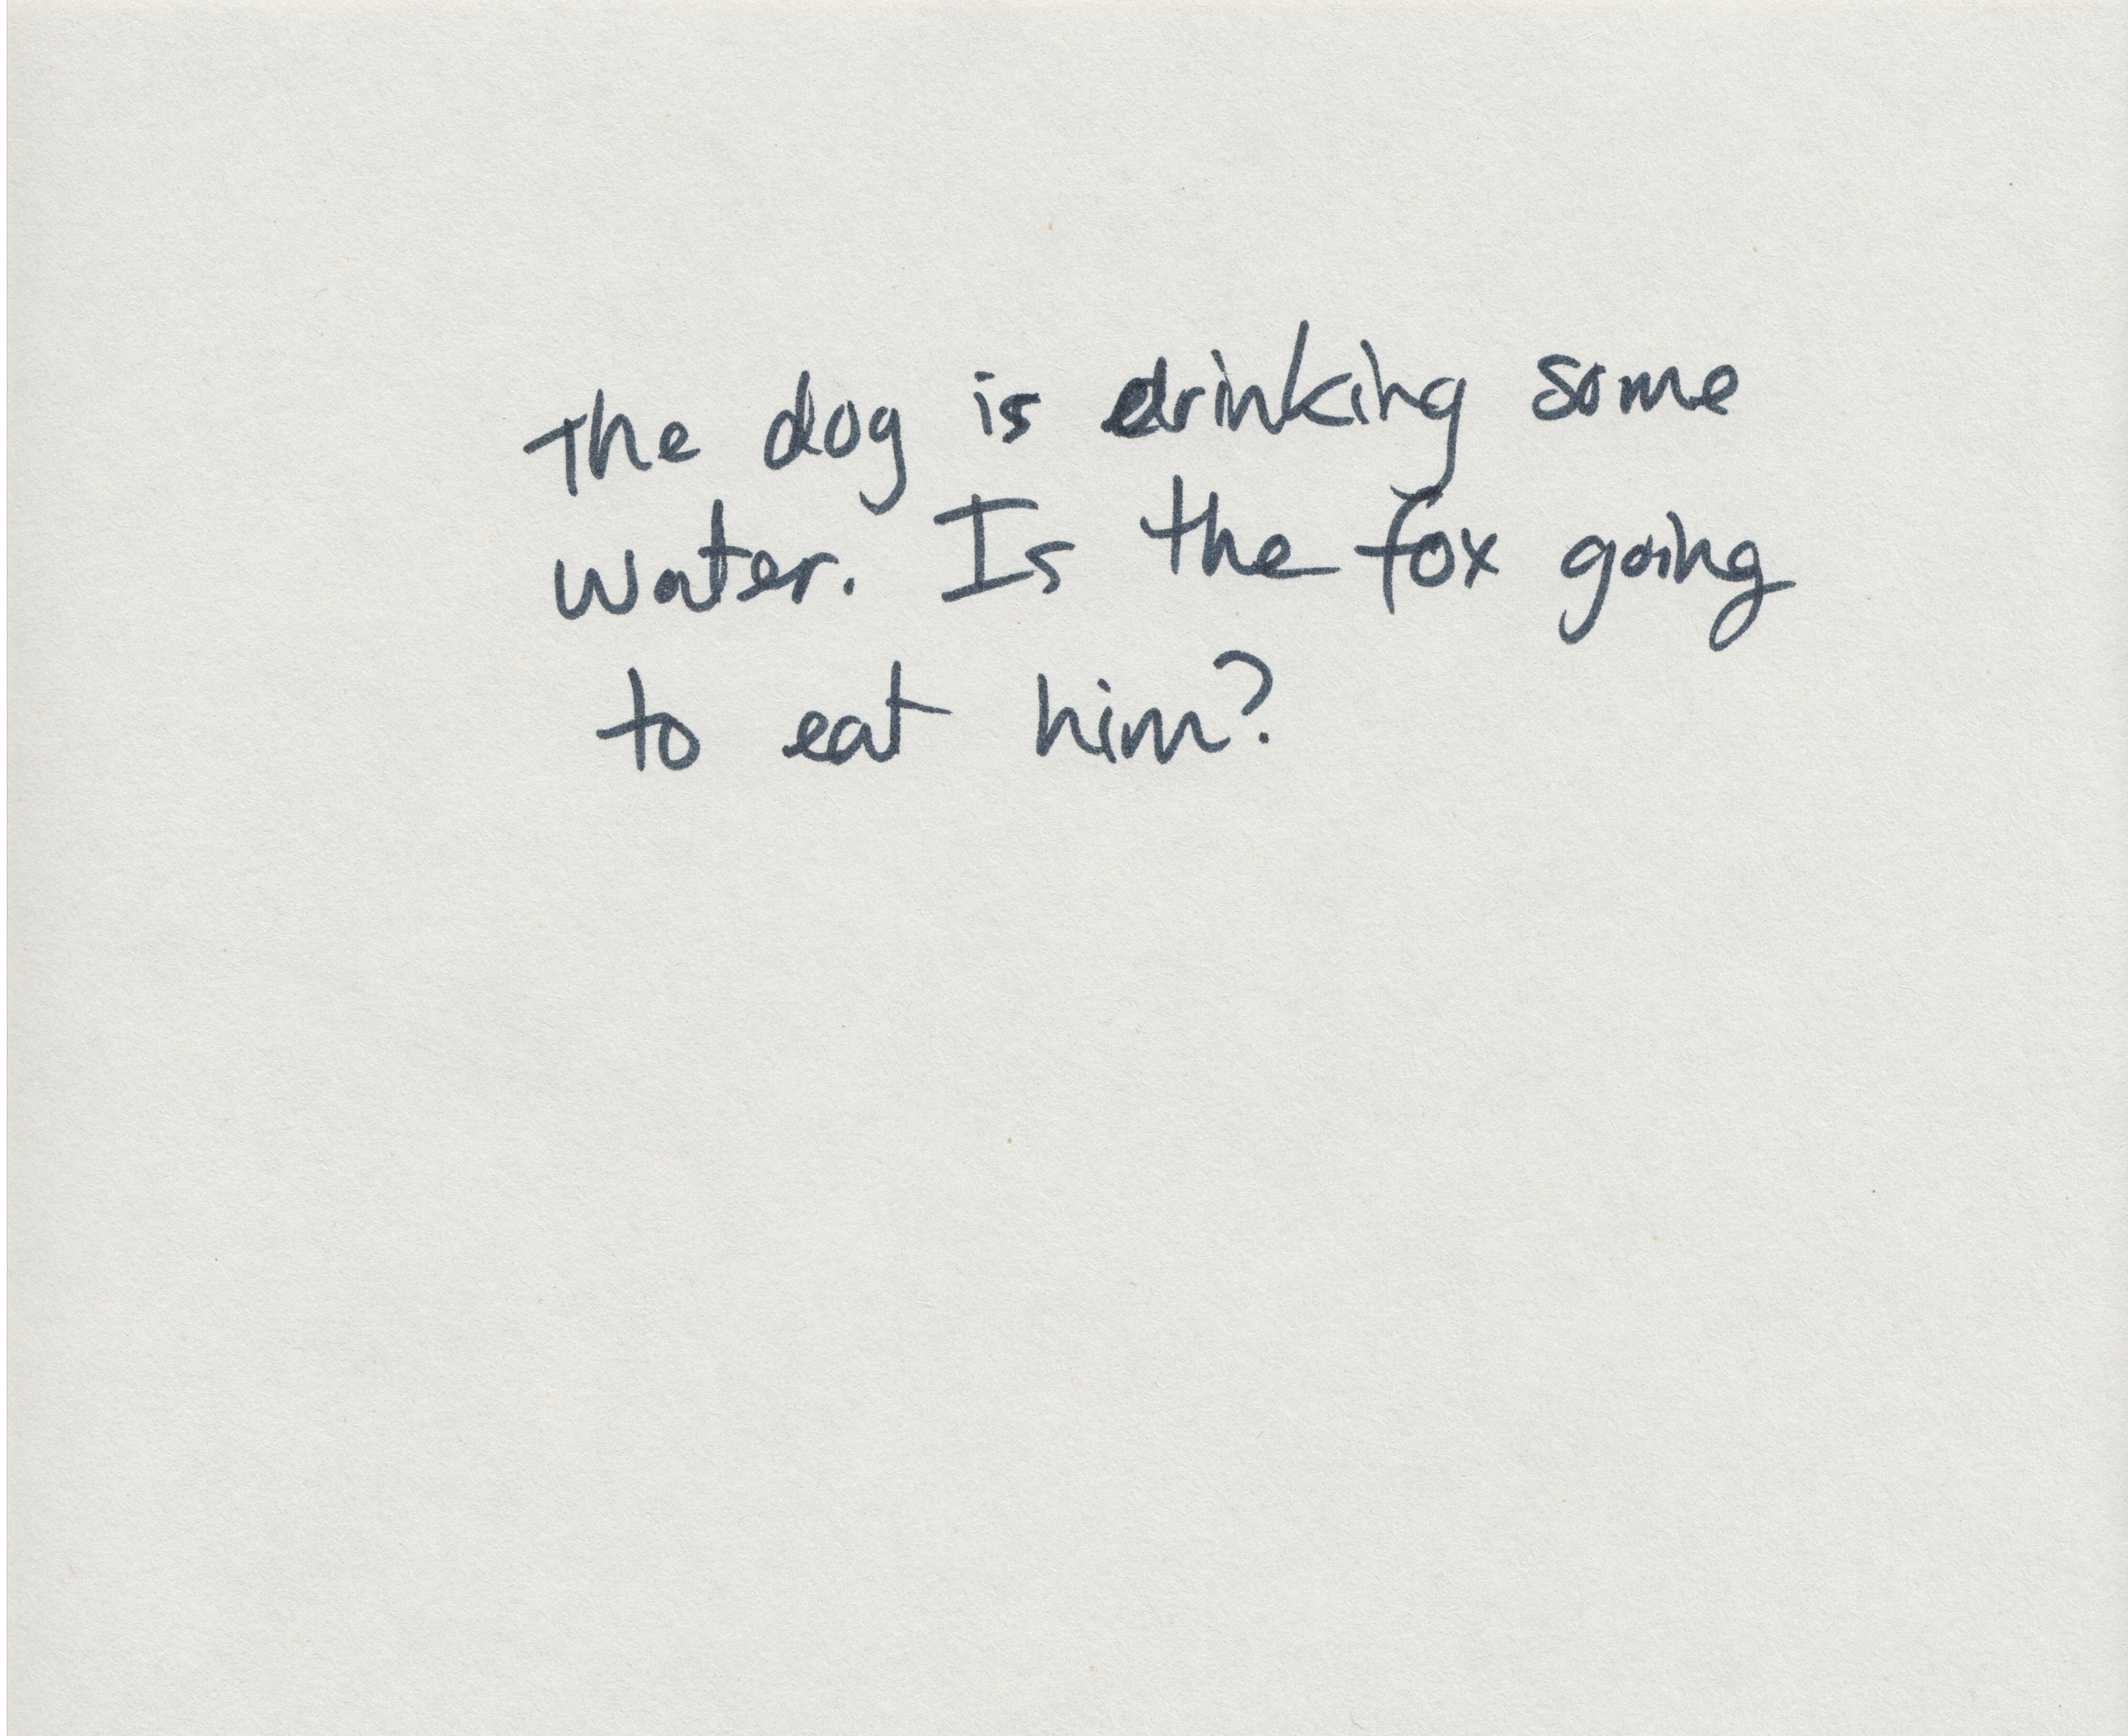 The dog is drinking some
water. Is the fox going
to eat him?